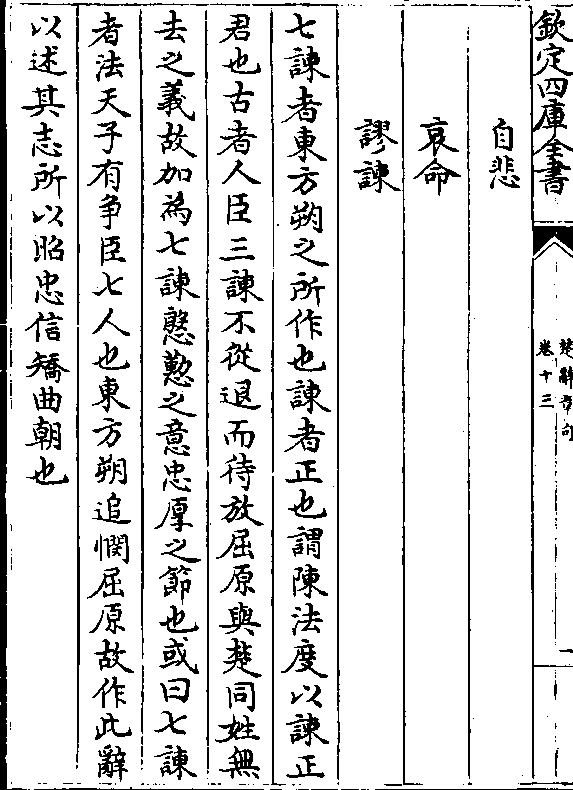 欽定四庫全書
楚辭章句
卷十三
一
自悲
哀命
謬諫
七諫者東方朔之所作也諫者正也謂陳法度以諫正
君也古者人臣三諫不從退而待放屈原與楚同姓無
去之義故加為七諫慇懃之意忠厚之節也或曰七諫
者法天子有爭臣七人也東方朔追憫屈原故作此辭
以述其志所以昭忠信矯曲朝也